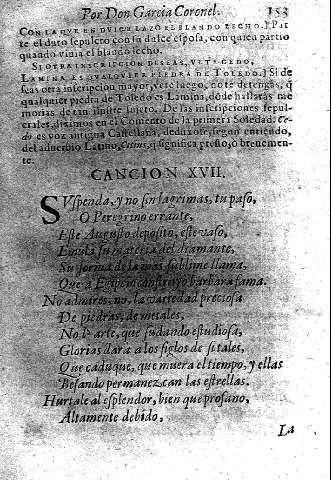 Por Don Garcia Coronel. 153
CON LA QVE EN DVLCE LAZO EL BLANDO LECHO.] Par
te el duro sepulcro con su dulce esposa, con quien partio
quando viuia el blando lecho.
SI OTRA INSCRIPCION DESEAS, VETE CEDO,
LAMINA ES QVALQVIER PIEDRA DE TOLEDO.] Si de
seas otra inscripcion mayor, vete luego, no te detengas, q̃
qualquier piedra de Toledo es Lamina, donde hallarás me
morias de tan ilustre sujeto. De las inscripciones sepul-
crales, diximos en el Comento de la primera Soledad. Ce-
do es voz antigua Castellana, deduzese, segun entiendo,
del aduerbio Latino, Citius, q̃ significa presto, ò breuemen-
te.
CANCION XVII.
SVspenda, y no sin lagrimas, tu paso,
O Peregrino errante,
Este Augusto deposito, este vaso,
Emula su materia del diamante,
Su forma de la mas sublime llama,
Que à Egipcio construyò barbara fama.
No admires, no, la variedad preciosa
De piedras, de metales,
No l'arte, que sudando estudiosa,
Glorias darà a los siglos de si tales,
Que caduque, que muera el tiempo, y ellas
Besando permanezcan las estrellas.
Hurtale al esplendor, bien que profano,
Altamente debido,
La